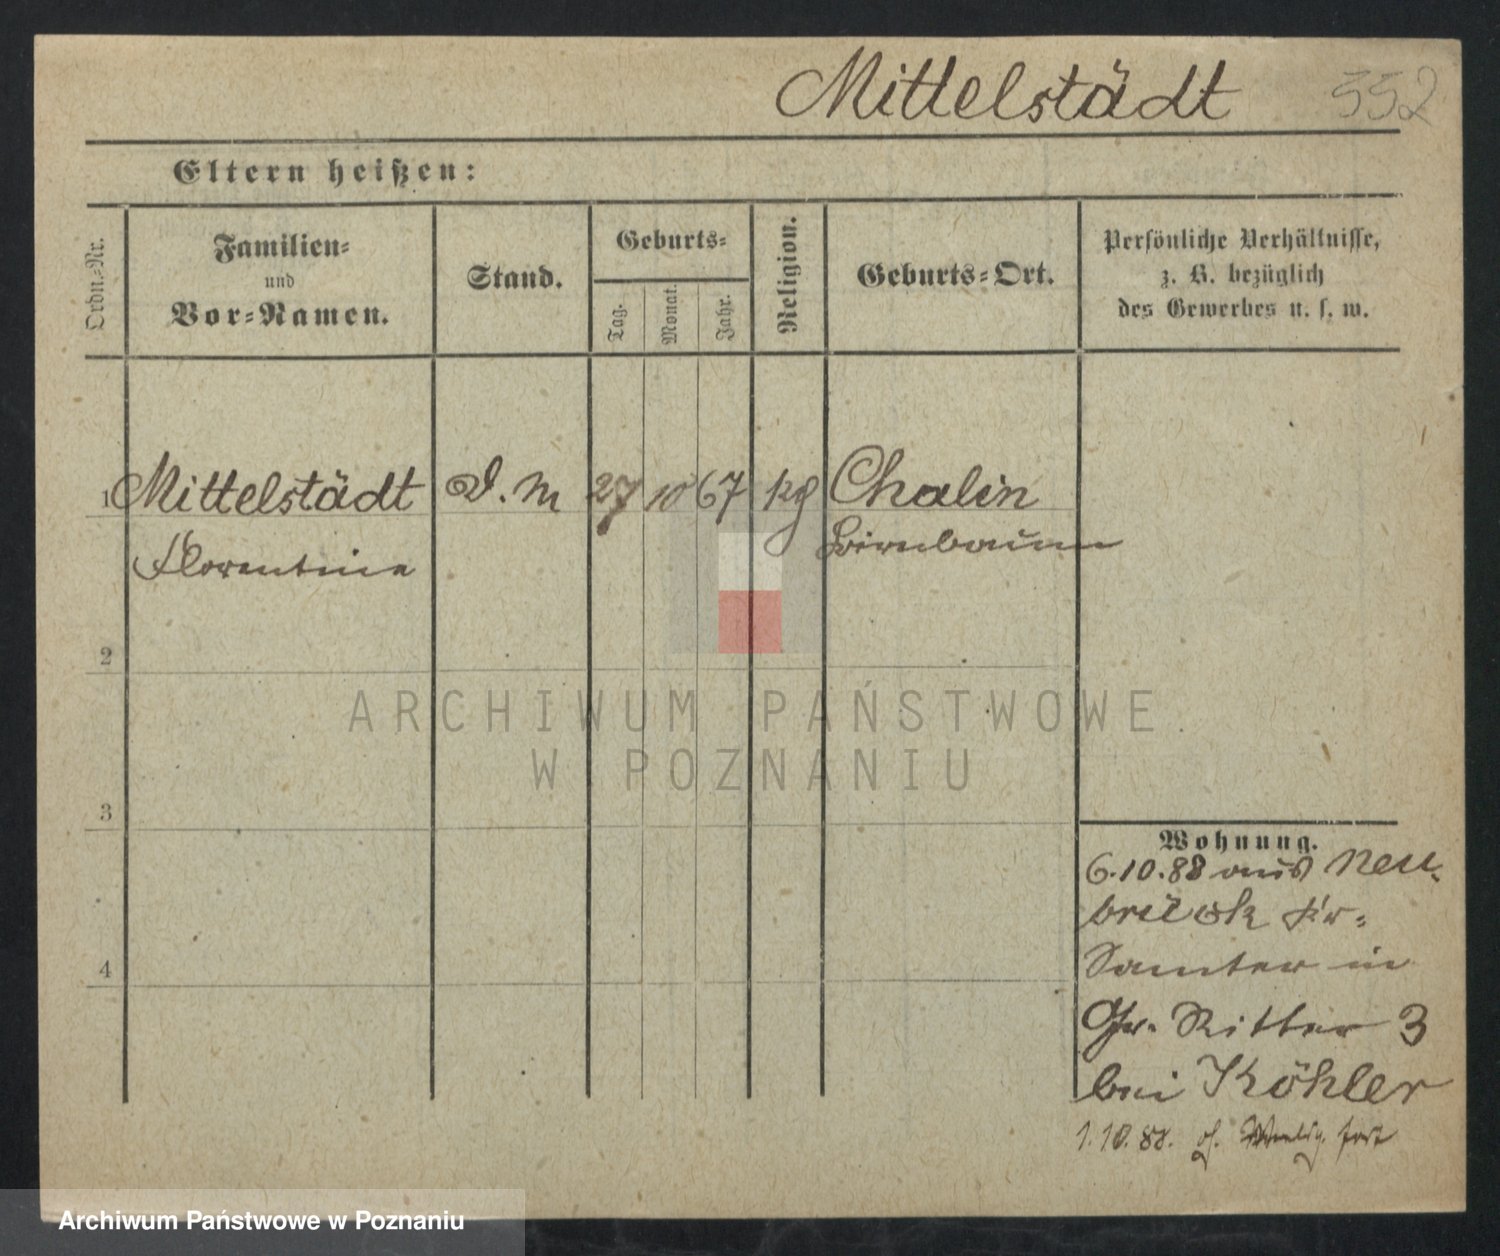 Mittelstädt 552
Eltern heißen:
Ordn.=Nr.
Familien=
und
Vor=Namen.
Stand.
Geburts=
Tag.
Monat.
Jahr.
Religion.
Geburts=Ort.
Persönliche Verhältnisse,
z. B. bezüglich
des Gewerbes u. s. w.
1 Mittelstädt D. M 27 10 67 kg Chalin
Florentine Birnbaum
2
3
4
Wohnung.
6.10.88 aus Neu-
brück Kr=
Samter in
Gr. Ritter 3
bei Köhler
1.10.88. fort
ARCHIWUM PAŃSTWOWE
W POZNANIU
Archiwum Państwowe w Poznaniu